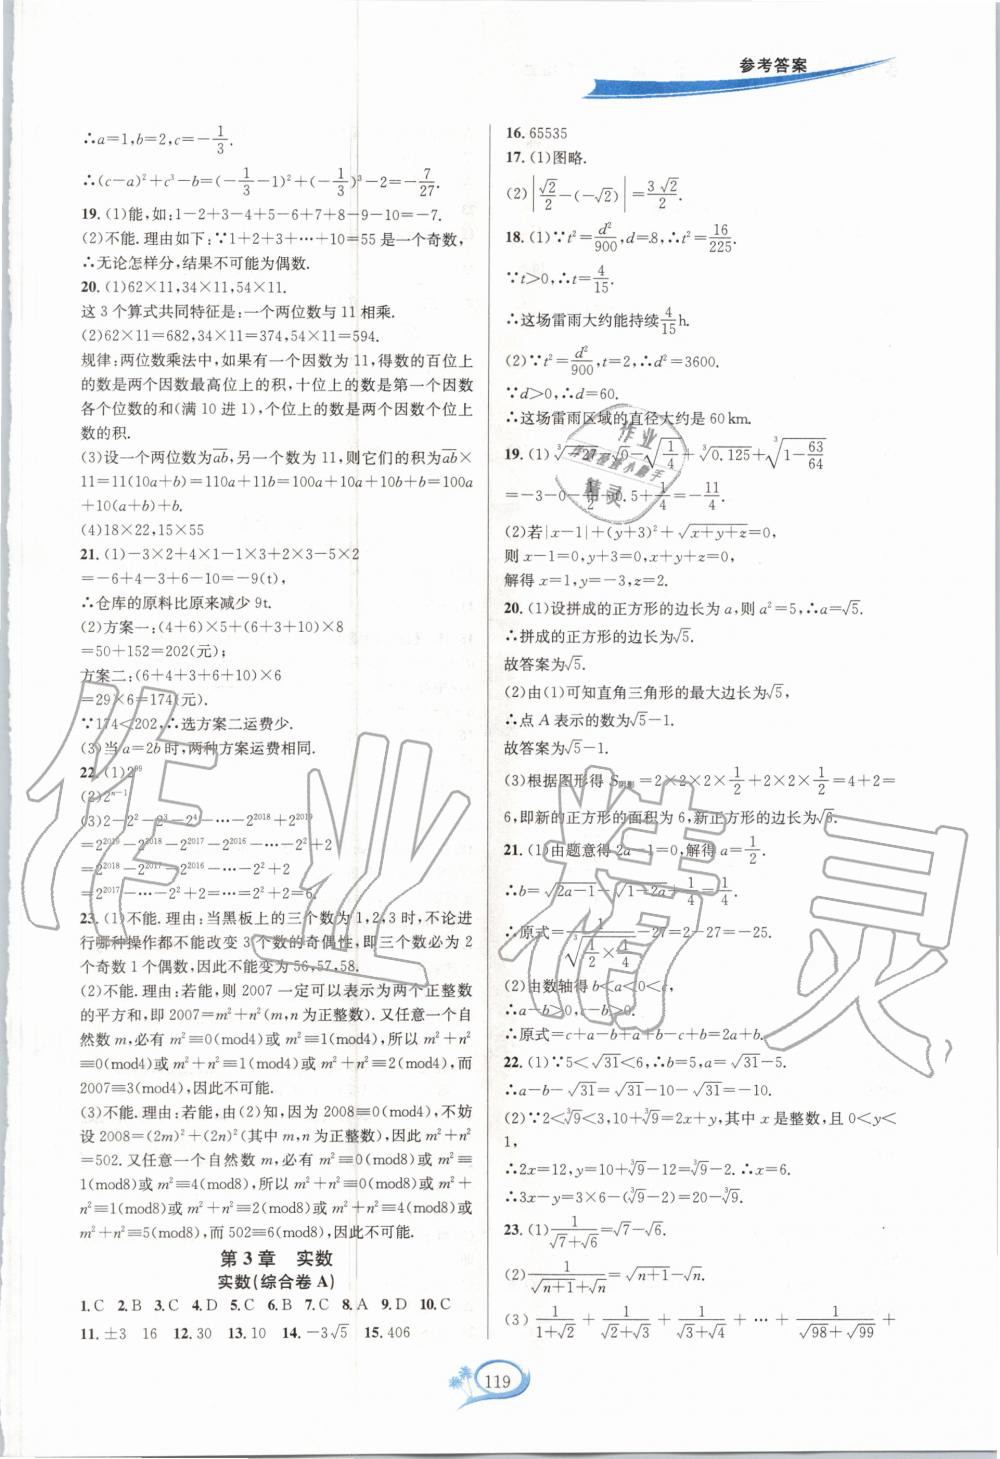 参考答案
∴a=1,b=2,c=-1/3.
∴(c-a)²+c³-b=(-1/3-1)²+(-1/3)³-2=-7/27.
19. (1)能,如:1-2+3-4+5-6+7+8-9-10=-7.
(2)不能.理由如下:∵1+2+3+…+10=55 是一个奇数,
∴无论怎样分,结果不可能为偶数.
20. (1)62×11,34×11,54×11.
这 3 个算式共同特征是:一个两位数与 11 相乘.
(2)62×11=682,34×11=374,54×11=594.
规律:两位数乘法中,如果有一个因数为 11,得数的百位上
的数是两个因数最高位上的积,十位上的数是第一个因数
各个位数的和(满 10 进 1),个位上的数是两个因数个位上
数的积.
(3)设一个两位数为a̅b̅,另一个数为 11,则它们的积为a̅b̅×
11=11(10a+b)=110a+11b=100a+10a+10b+b=100a
+10(a+b)+b.
(4)18×22,15×55
21. (1)-3×2+4×1-1×3+2×3-5×2
=-6+4-3+6-10=-9(t),
∴仓库的原料比原来减少 9t.
(2)方案一:(4+6)×5+(6+3+10)×8
=50+152=202(元);
方案二:(6+4+3+6+10)×6
=29×6=174(元).
∵174<202,∴选方案二运费少.
(3)当 a=2b 时,两种方案运费相同.
22. (1)2⁹⁹
(2)2ⁿ⁻¹
(3)2-2²-2³-2⁴-…-2²⁰¹⁸+2²⁰¹⁹
=2²⁰¹⁹-2²⁰¹⁸-2²⁰¹⁷-2²⁰¹⁶-…-2²+2
=2²⁰¹⁸-2²⁰¹⁷-2²⁰¹⁶-…-2²+2
=2²⁰¹⁷-…-2²+2=2²+2=6.
23. (1)不能.理由:当黑板上的三个数为 1,2,3 时,不论进
行哪种操作都不能改变 3 个数的奇偶性,即三个数必为 2
个奇数 1 个偶数,因此不能变为 56,57,58.
(2)不能.理由:若能,则 2007 一定可以表示为两个正整数
的平方和,即 2007=m²+n²(m,n 为正整数).又任意一个自
然数 m,必有 m²≡0(mod4)或 m²≡1(mod4),所以 m²+
n²≡0(mod4)或 m²+n²≡1(mod4)或 m²+n²≡2(mod4),而
2007≡3(mod4),因此不可能.
(3)不可能.理由:若能,由(2)知,因为 2008≡0(mod4),不妨
设 2008=(2m)²+(2n)²(其中 m,n 为正整数),因此 m²+n²
=502.又任意一个自然数 m,必有 m²≡0(mod8)或 m²≡
1(mod8)或 m²≡4(mod8),所以 m²+n²≡0(mod8)或 m²+
n²≡1(mod8)或 m²+n²≡2(mod8)或 m²+n²≡4(mod8)或
m²+n²≡5(mod8),而 502≡6(mod8),因此不可能.
第 3 章 实数
实数(综合卷 A)
1. C 2. B 3. C 4. D 5. C 6. B 7. C 8. A 9. D 10. C
11. ±3 16 12. 30 13. 10 14. -3√5 15. 406
16. 65535
17. (1)图略.
(2)|√2/2-(-√2)|=3√2/2.
18. (1)∵t²=d²/900,d=8,∴t²=16/225.
∵t>0,∴t=4/15.
∴这场雷雨大约能持续4/15h.
(2)∵t²=d²/900,t=2,∴d²=3600.
∵d>0,∴d=60.
∴这场雷雨区域的直径大约是 60 km.
19. (1)∛-27-√0-√(1/4)+∛0.125+∛(1-63/64)
=-3-0-1/2+0.5+1/4=-11/4.
(2)若|x-1|+(y+3)²+√(x+y+z)=0,
则 x-1=0,y+3=0,x+y+z=0,
解得 x=1,y=-3,z=2.
20. (1)设拼成的正方形的边长为 a,则 a²=5,∴a=√5.
∴拼成的正方形的边长为√5.
故答案为√5.
(2)由(1)可知直角三角形的最大边长为√5,
∴点 A 表示的数为√5-1.
故答案为√5-1.
(3)根据图形得 S阴影=2×2×2×1/2+2×2×1/2=4+2=
6,即新的正方形的面积为 6,新正方形的边长为√6.
21. (1)由题意得 2a-1=0,解得 a=1/2.
∴b=√(2a-1)-√(1-2a)+1/4=1/4.
∴原式=1/∛(1/2×1/4)-27=2-27=-25.
(2)由数轴得 b<a<0<c,
∴a-b>0,c-b>0.
∴原式=c+a-b+a-c+b=2a+b.
22. (1)∵5<√31<6,∴b=5,a=√31-5.
∴a-b-√31=√31-10-√31=-10.
(2)∵2<∛9<3,10+∛9=2x+y,其中 x 是整数,且 0<y<
1,
∴2x=12,y=10+∛9-12=∛9-2.∴x=6.
∴3x-y=3×6-(∛9-2)=20-∛9.
23. (1)1/(√7+√6)=√7-√6.
(2)1/(√(n+1)+√n)=√(n+1)-√n.
(3)1/(1+√2)+1/(√2+√3)+1/(√3+√4)+…+1/(√98+√99)+
119